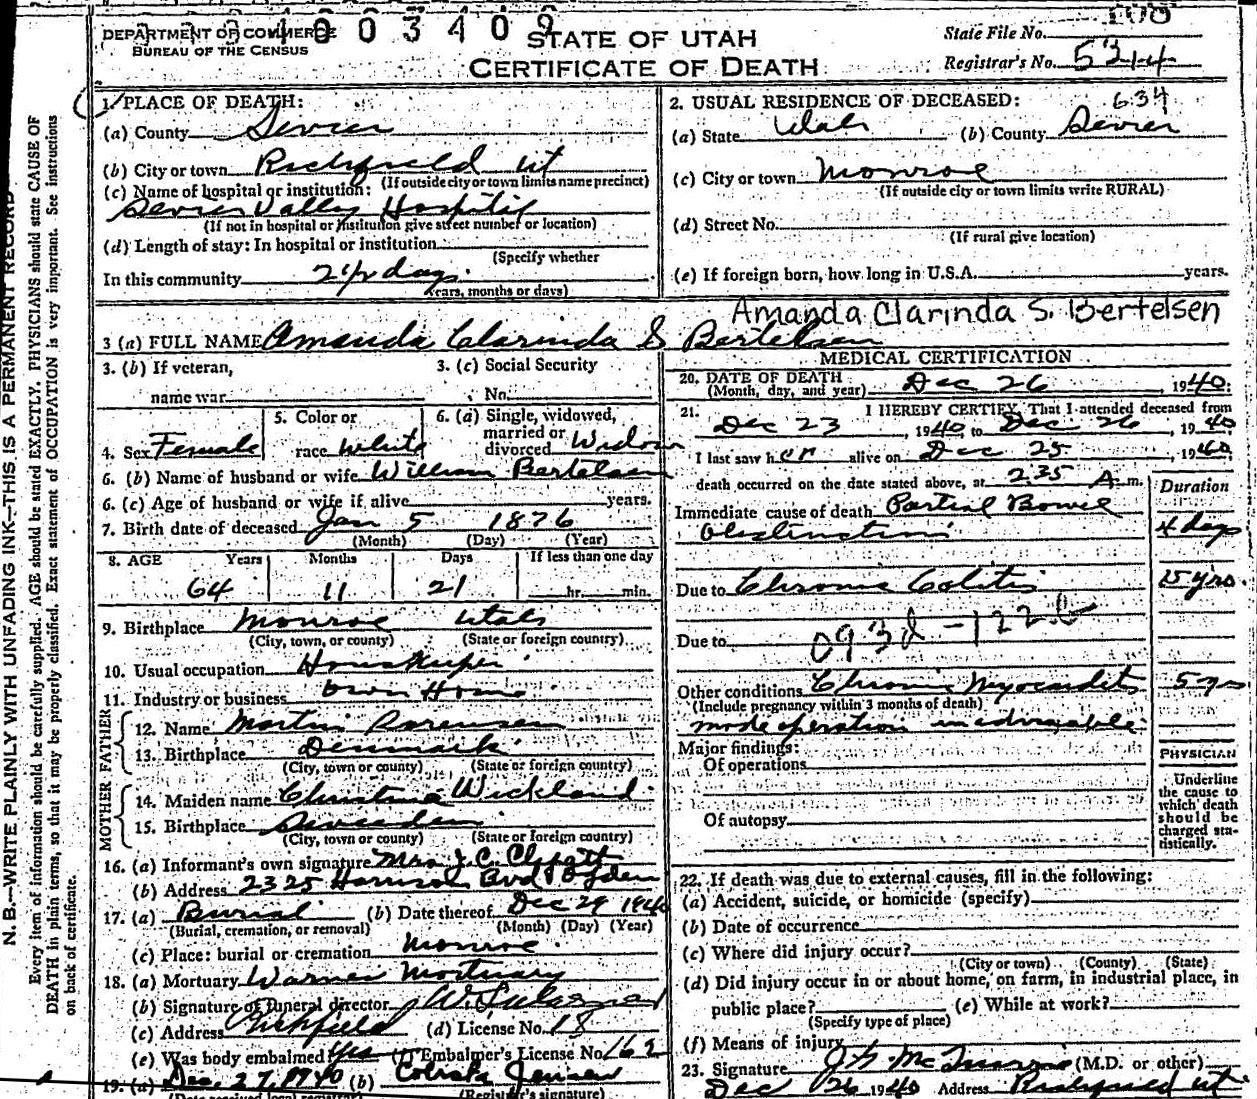 DEPARTMENT OF COMMERCE
BUREAU OF THE CENSUS
4 0 0 3 4 0 9
STATE OF UTAH
CERTIFICATE OF DEATH
State File No.
Registrar's No. 5244
N. B.—WRITE PLAINLY WITH UNFADING INK—THIS IS A PERMANENT RECORD
Every item of information should be carefully supplied. AGE should be stated EXACTLY. PHYSICIANS should state CAUSE OF
DEATH in plain terms, so that it may be properly classified. Exact statement of OCCUPATION is very important. See instructions
on back of certificate.
1. PLACE OF DEATH:
(a) County Sevier
(b) City or town Richfield Ut
(If outside city or town limits name precinct)
(c) Name of hospital or institution:
Sevier Valley Hospital
(If not in hospital or institution give street number or location)
(d) Length of stay: In hospital or institution
(Specify whether
In this community 2 1/2 days
years, months or days)
2. USUAL RESIDENCE OF DECEASED: 634
(a) State Utah (b) County Sevier
(c) City or town Monroe
(If outside city or town limits write RURAL)
(d) Street No.
(If rural give location)
(e) If foreign born, how long in U.S.A. years.
Amanda Clarinda S. Bertelsen
3 (a) FULL NAME Amanda Clarinda S Bertelsen
3. (b) If veteran,
name war
3. (c) Social Security
No.
4. Sex Female
5. Color or
race White
6. (a) Single, widowed,
married or
divorced Widow
6. (b) Name of husband or wife William Bertelsen
6. (c) Age of husband or wife if alive years.
7. Birth date of deceased Jan 5 1876
(Month) (Day) (Year)
8. AGE Years Months Days If less than one day
64 11 21 hr. min.
9. Birthplace Monroe Utah
(City, town, or county) (State or foreign country)
10. Usual occupation Housekeeper
11. Industry or business Own Home
FATHER
12. Name Martin Sorensen
13. Birthplace Denmark
(City, town or county) (State or foreign country)
MOTHER
14. Maiden name Christina Wickland
15. Birthplace Sweeden
(City, town or county) (State or foreign country)
16. (a) Informant's own signature Mrs J. C.
(b) Address 2325 Harrison Bvd Ogden
17. (a) Burial (b) Date thereof Dec 29 1940
(Burial, cremation, or removal) (Month) (Day) (Year)
(c) Place: burial or cremation Monroe
18. (a) Mortuary Warner Mortuary
(b) Signature of funeral director
(c) Address Richfield (d) License No. 18
(e) Was body embalmed Yes (f) Embalmer's License No. 162
19. (a) Dec. 27, 1940 (b) Jensen
(Date received local registrar) (Registrar's signature)
MEDICAL CERTIFICATION
20. DATE OF DEATH Dec 26, 1940.
(Month, day, and year)
21. I HEREBY CERTIFY, That I attended deceased from
Dec 23, 1940, to Dec 26, 1940
I last saw her alive on Dec 25, 1940,
death occurred on the date stated above, at 2:35 A. m.
Duration
Immediate cause of death Partial Bowel
Obstruction 4 days
Due to Chronic Colitis 15 yrs.
Due to 093d - 122b
Other conditions Chronic Myocarditis 5 yrs
(Include pregnancy within 3 months of death)
made operation inadvisable
Major findings:
Of operations
Of autopsy
PHYSICIAN
Underline
the cause to
which death
should be
charged sta-
tistically.
22. If death was due to external causes, fill in the following:
(a) Accident, suicide, or homicide (specify)
(b) Date of occurrence
(c) Where did injury occur?
(City or town) (County) (State)
(d) Did injury occur in or about home, on farm, in industrial place, in
public place? (e) While at work?
(Specify type of place)
(f) Means of injury
23. Signature (M.D. or other)
Dec 26 1940 Address Richfield Ut